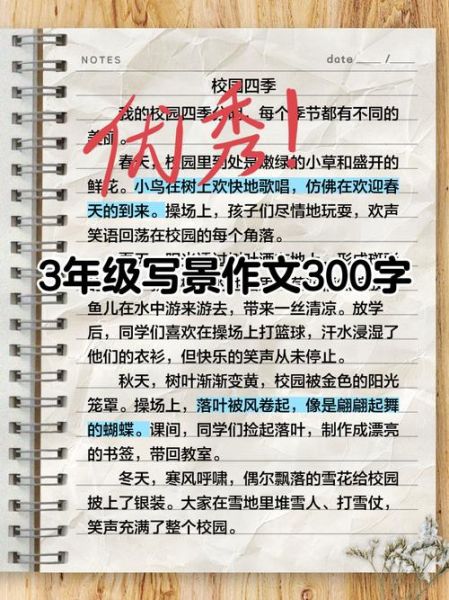 NOTES
date ____ /____
校园四季
优秀!
我的校园四季分明,每个季节都有不同的
美丽。
春天,校园里到处是嫩绿的小草和盛开的
鲜花。小鸟在树上欢快地歌唱,仿佛在欢迎春
天的到来。操场上,孩子们尽情地玩耍,欢声
笑语回荡在校园的每个角落。
3年级写景作文300字
鱼儿在水中游来游去,带来一丝清凉。放学
后,同学们喜欢在操场上打篮球,汗水浸湿了
他们的衣衫,但快乐的笑声从未停止。
秋天,树叶渐渐变黄,校园被金色的阳光
笼罩。操场上,落叶被风卷起,像是翩翩起舞
的蝴蝶。课间,同学们捡起落叶,制作成漂亮
的书签,带回教室。
冬天,寒风呼啸,偶尔飘落的雪花给校园
披上了银装。大家在雪地里堆雪人、打雪仗,
笑声充满了整个校园。